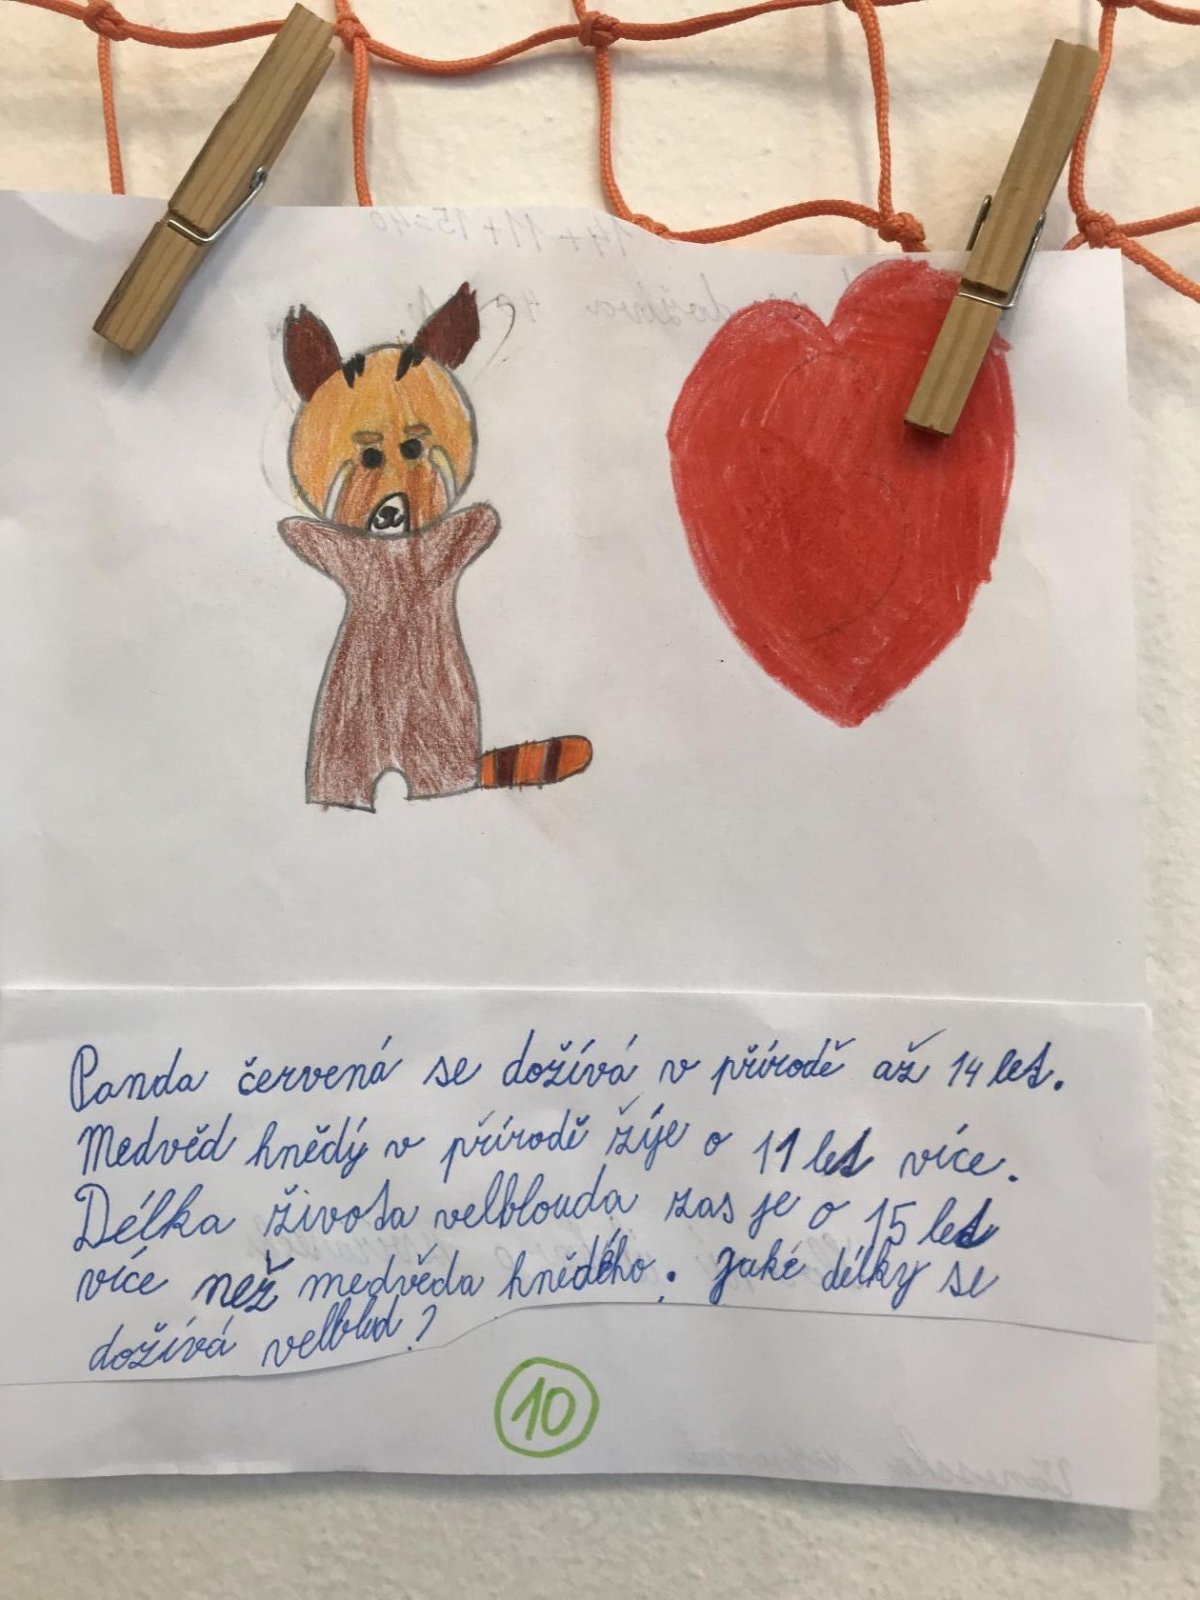 Panda červená se dožívá v přírodě až 14 let.
Medvěd hnědý v přírodě žije o 11 let více.
Délka života velblouda zas je o 15 let
více než medvěda hnědého. Jaké délky se
dožívá velblud?
10